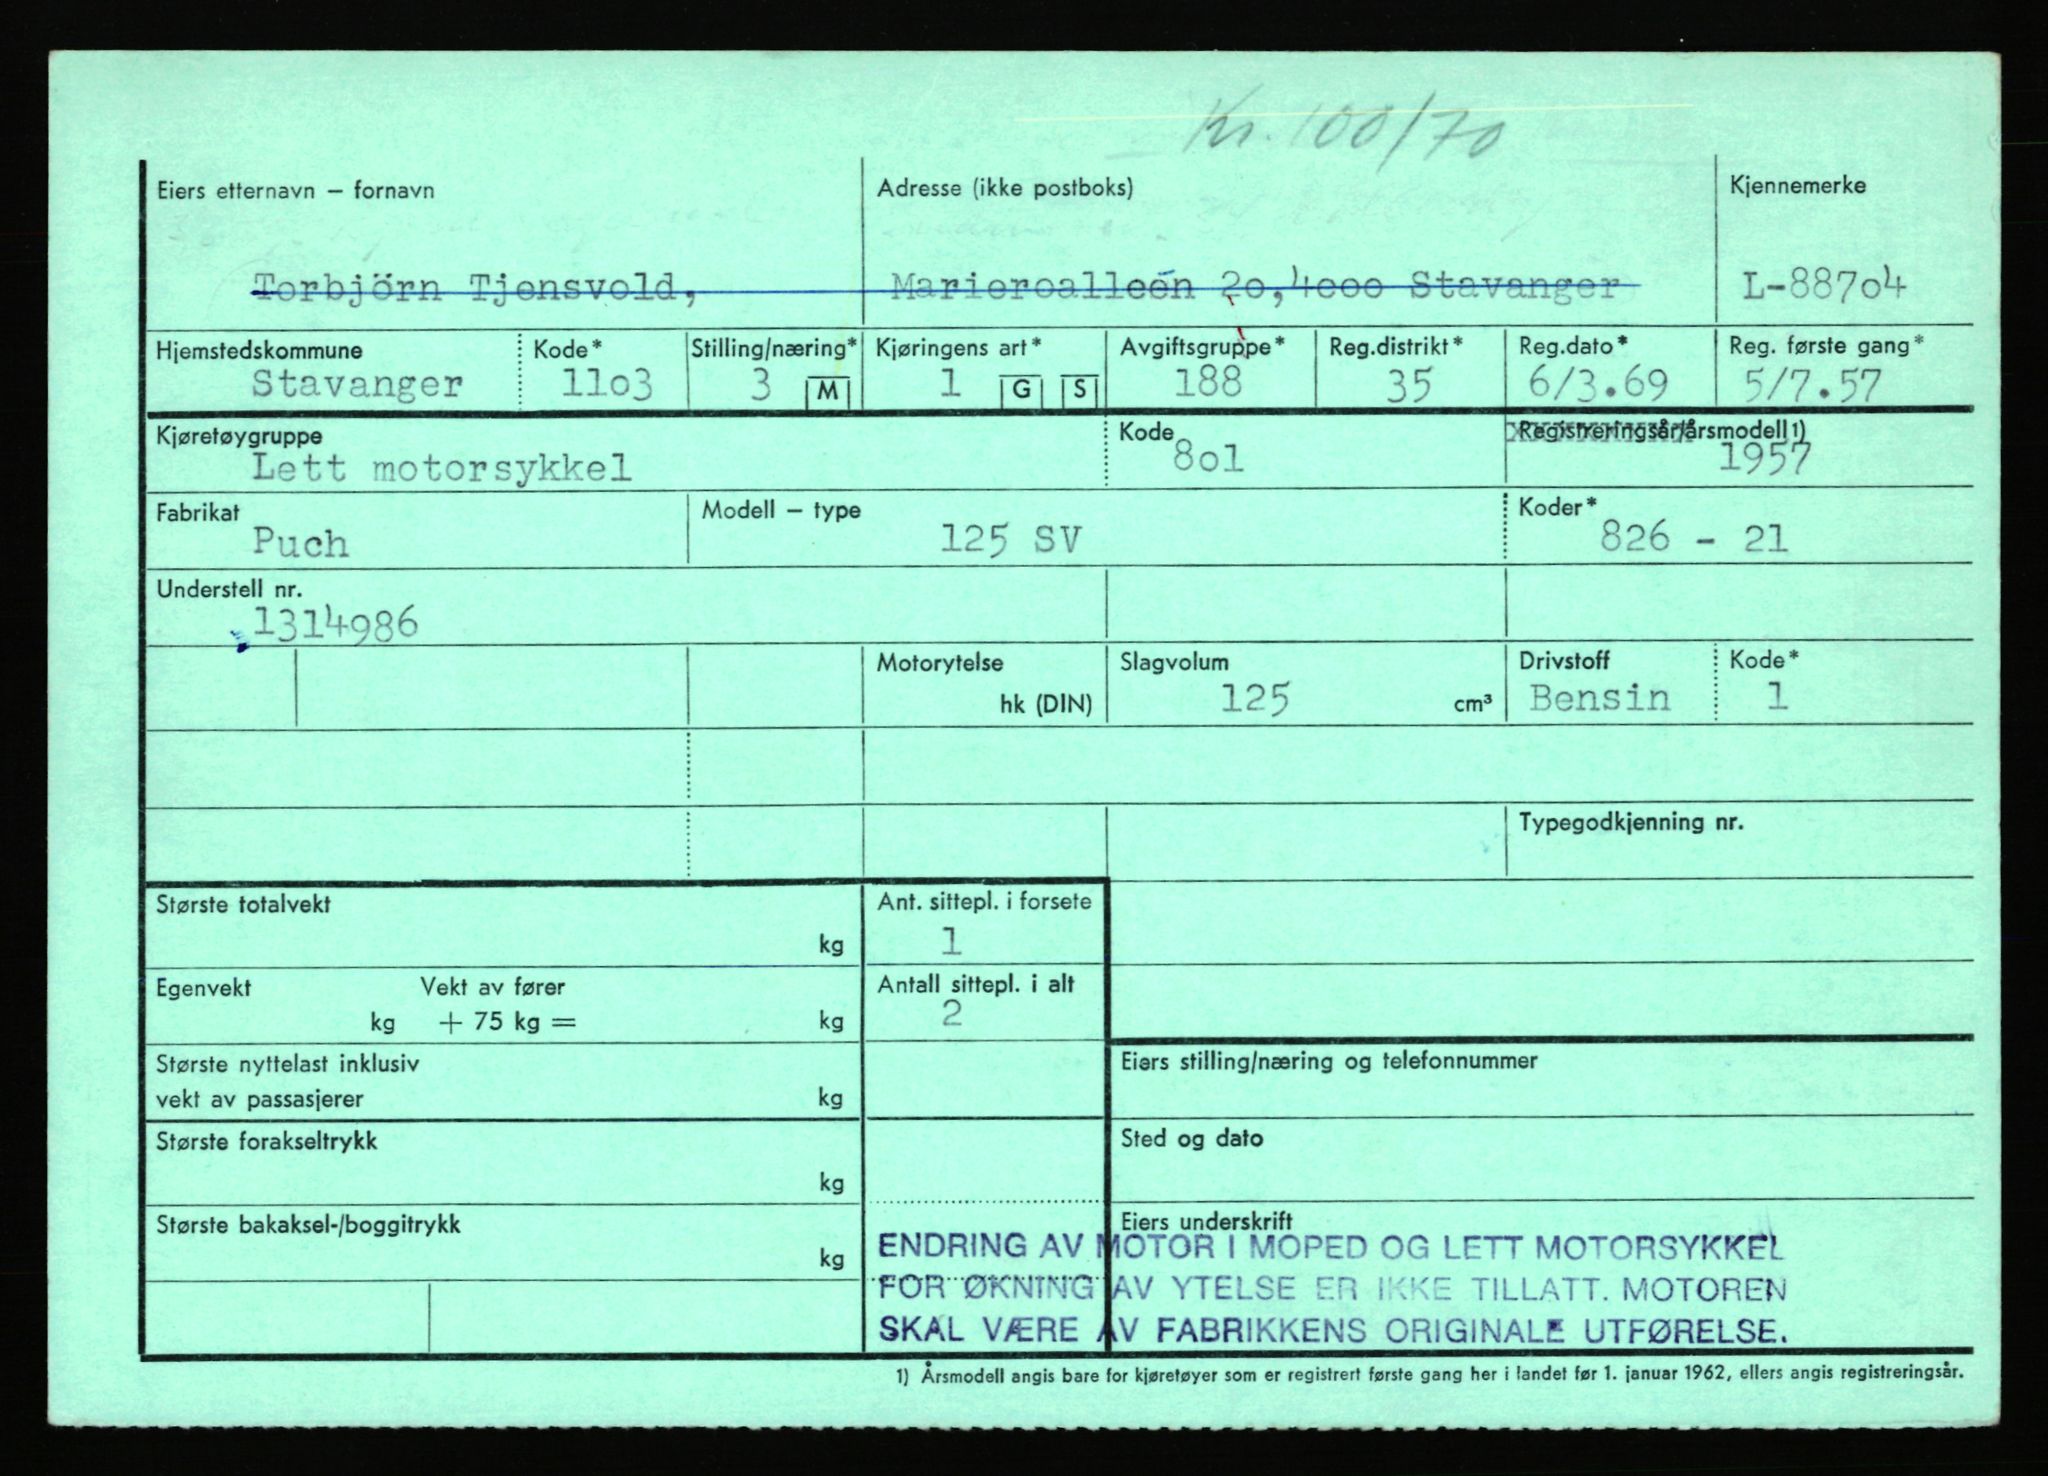 Kr. 100/70
Eiers etternavn – fornavn
Adresse (ikke postboks)
Kjennemerke
Torbjörn Tjensvold,
Marieroalleén 2o,4ooo Stavanger
L-887o4
Hjemstedskommune
Kode*
Stilling/næring*
Kjøringens art*
Avgiftsgruppe*
Reg.distrikt*
Reg.dato*
Reg. første gang*
Stavanger
11o3
3
M
1
G
S
188
35
6/3.69
5/7.57
Kjøretøygruppe
Kode
Registreringsår/årsmodell 1)
Lett motorsykkel
8o1
1957
Fabrikat
Modell – type
Koder*
Puch
125 SV
826 - 21
Understell nr.
1314986
Motorytelse
Slagvolum
Drivstoff
Kode*
hk (DIN)
125
cm³
Bensin
1
Typegodkjenning nr.
Største totalvekt
Ant. sittepl. i forsete
kg
1
Egenvekt
Vekt av fører
Antall sittepl. i alt
kg
+ 75 kg =
kg
2
Største nyttelast inklusiv
vekt av passasjerer
kg
Eiers stilling/næring og telefonnummer
Største forakseltrykk
kg
Sted og dato
Største bakaksel-/boggitrykk
kg
Eiers underskrift
ENDRING AV MOTOR I MOPED OG LETT MOTORSYKKEL
FOR ØKNING AV YTELSE ER IKKE TILLATT. MOTOREN
SKAL VÆRE AV FABRIKKENS ORIGINALE UTFØRELSE.
1) Årsmodell angis bare for kjøretøyer som er registrert første gang her i landet før 1. januar 1962, ellers angis registreringsår.